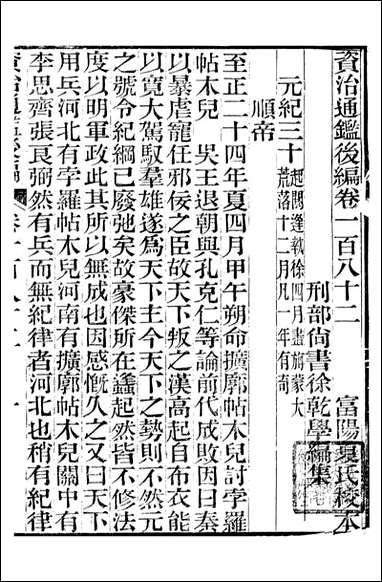 資治通鑑後編卷一百八十二
刑部尚書徐乾學編集
富陽夏氏校本
元紀三十
起閼逢執徐四月盡旃蒙大
荒落十二月凡一年有奇
順帝
至正二十四年夏四月甲午朔命擴廓帖木兒討孛羅
帖木兒　吳王退朝與孔克仁等論前代成敗因曰秦
以暴虐寵任邪佞之臣故天下叛之漢高起自布衣能
以寬大駕馭羣雄遂爲天下主今天下之勢則不然元
之號令紀綱已廢弛矣故豪傑所在蠭起然皆不修法
度以明軍政此其所以無成也因感慨久之又曰天下
用兵河北有孛羅帖木兒河南有擴廓帖木兒關中有
李思齊張良弼然有兵而無紀律者河北也稍有紀律